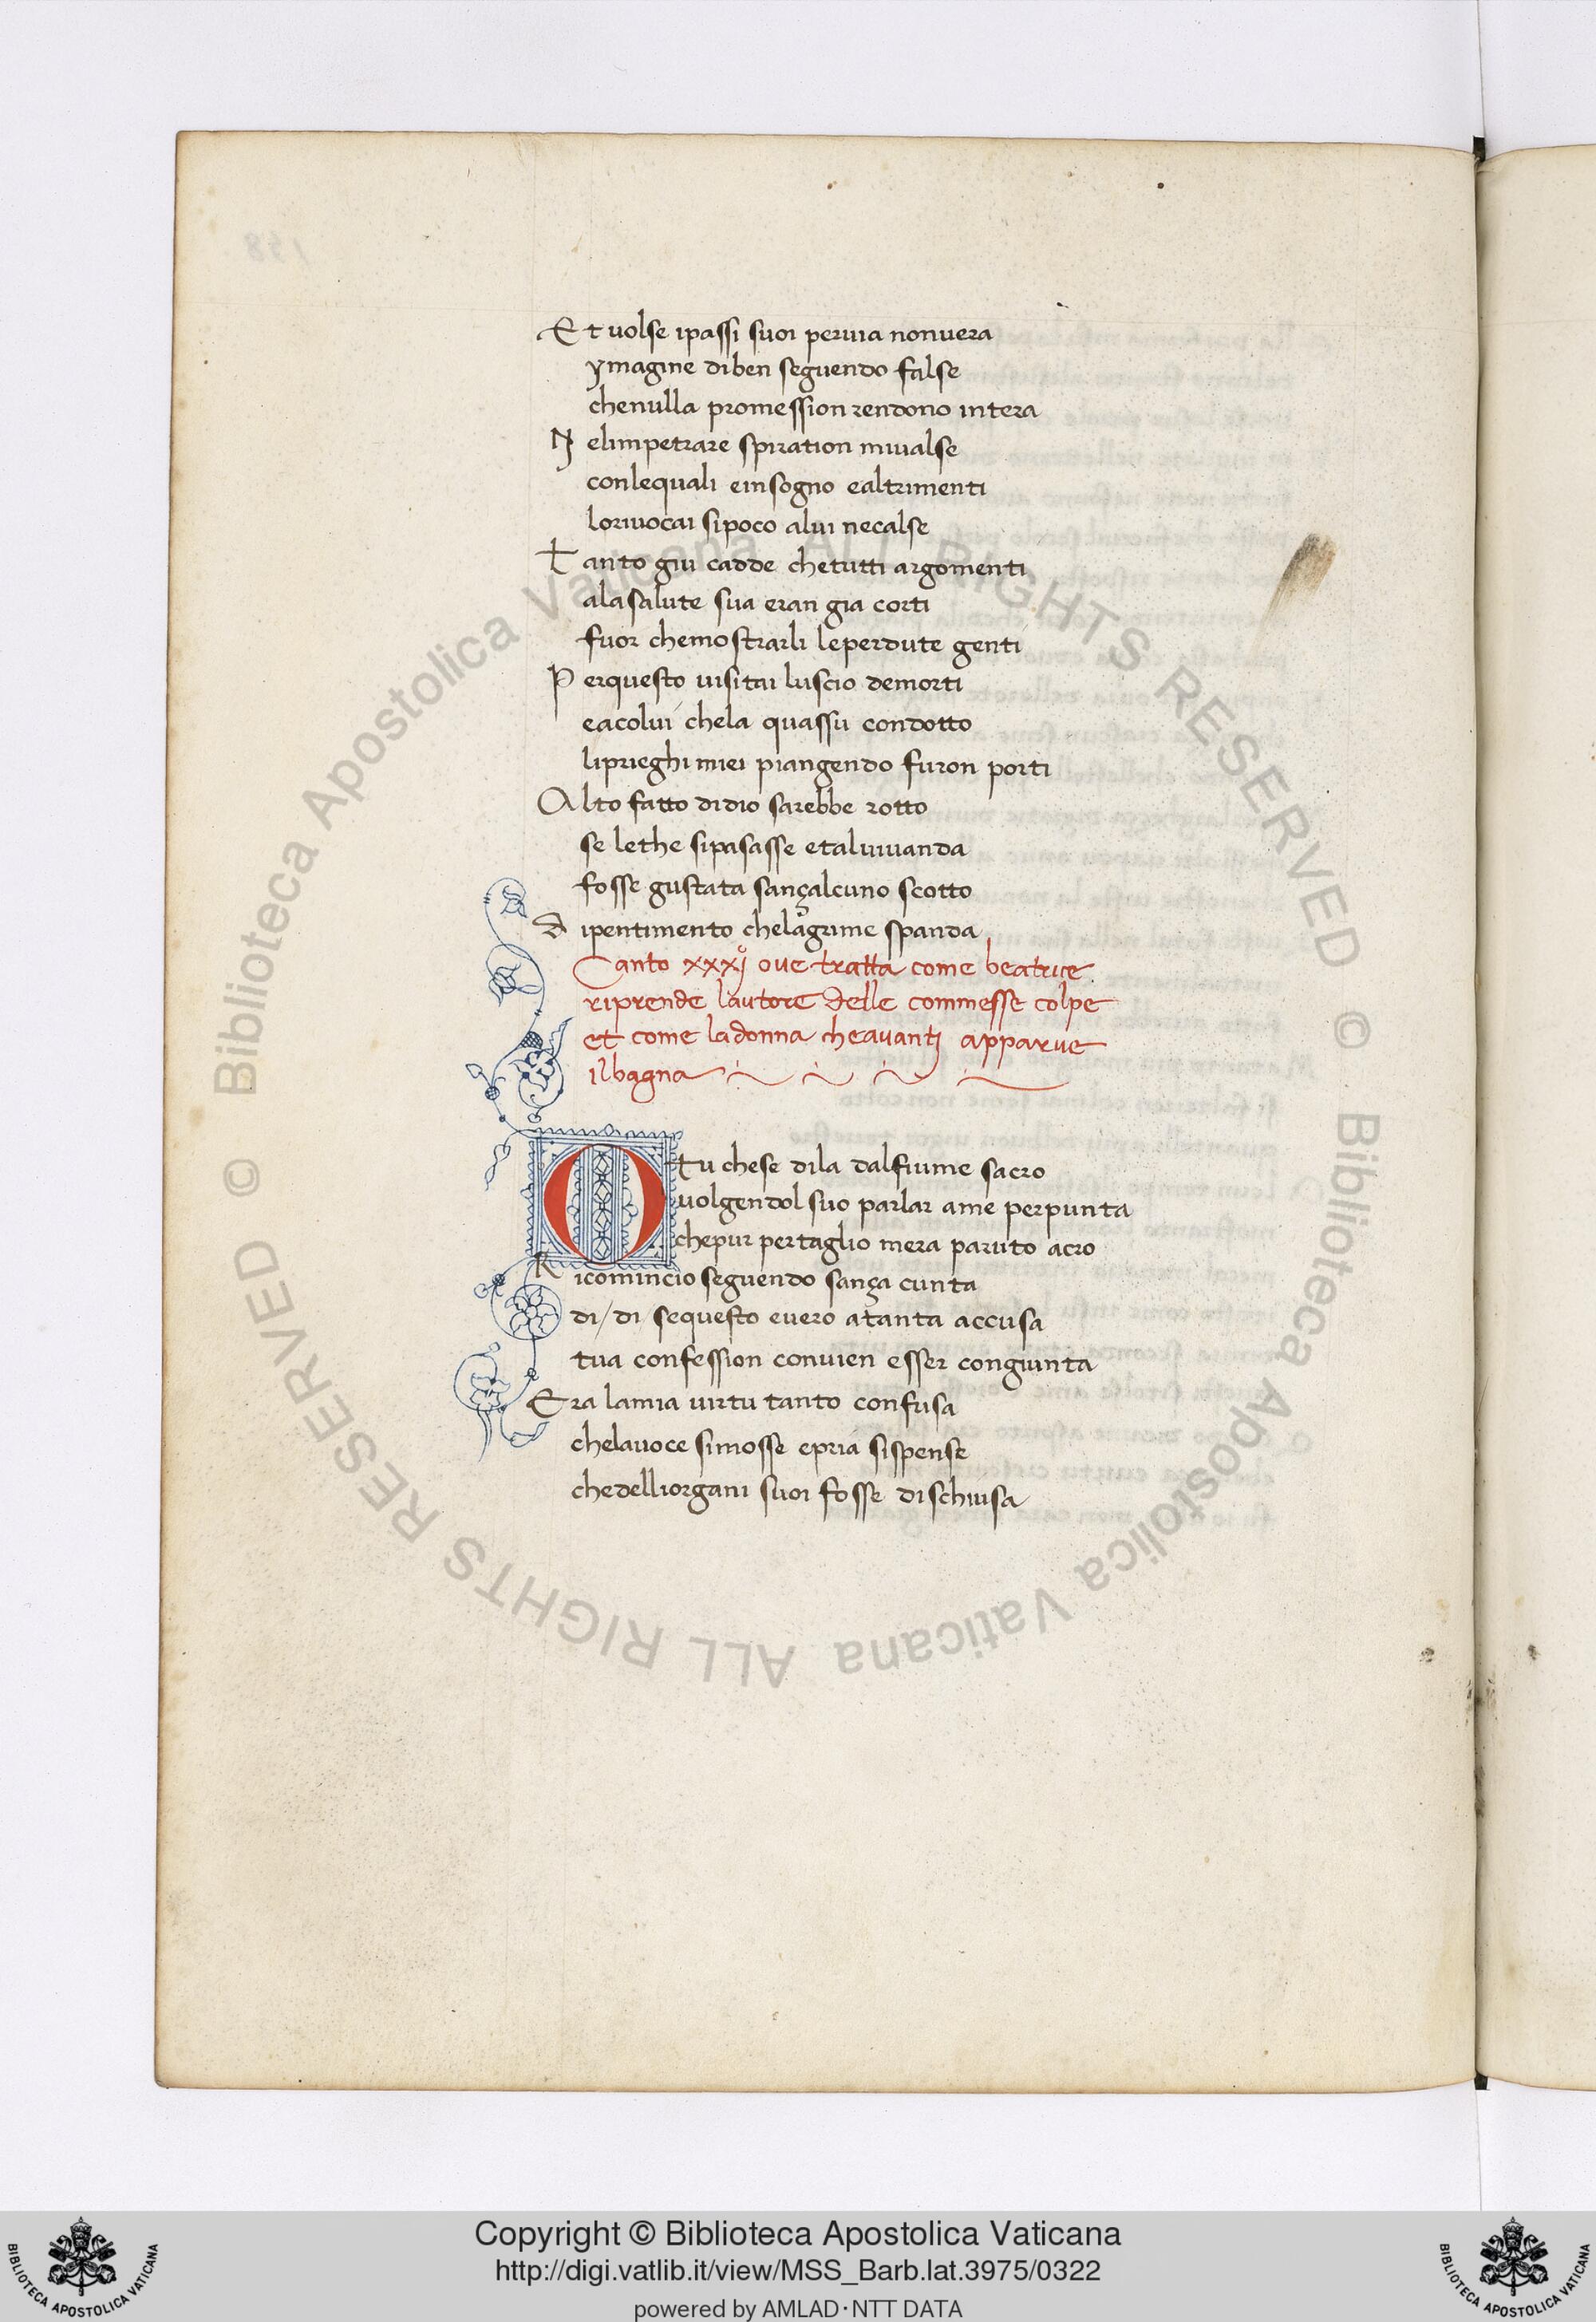 Et uolse ipassi suoi peruia nonuera
ymagine diben seguendo false
chenulla promession rendono intera
Nelimpetrare spiration miualse
conlequali einsogno ealtrimenti
loriuocai sipoco alui necalse
Tanto giu cadde chetutti argomenti
alasalute sua eran gia corti
fuor chemostrarli leperdute genti
Perquesto uisitai luscio demorti
eacolui chela quassu condotto
liprieghi miei piangendo furon porti
Alto fatto didio sarebbe rotto
se lethe sipasasse etaluiuanda
fosse gustata sançalcuno scotto
dipentimento chelagrime spanda
Canto xxxjº oue tratta come beatrice
riprende lautore delle commesse colpe
et come ladonna cheauantj apparue
ilbagna
O tu chese dila dalfiume sacro
uolgendol suo parlar ame perpunta
chepur pertaglio mera paruto acro
Ricomincio seguendo sança cunta
di/di sequesto euero atanta accusa
tua confession conuien esser congiunta
Era lamia uirtu tanto confusa
chelauoce simosse epria sispense
chedelliorgani suoi fosse dischiusa
198
© Biblioteca Apostolica Vaticana ALL RIGHTS RESERVED
© Biblioteca Apostolica Vaticana ALL RIGHTS RESERVED
BIBLIOTECA APOSTOLICA VATICANA
Copyright © Biblioteca Apostolica Vaticana
http://digi.vatlib.it/view/MSS_Barb.lat.3975/0322
powered by AMLAD·NTT DATA
BIBLIOTECA APOSTOLICA VATICANA